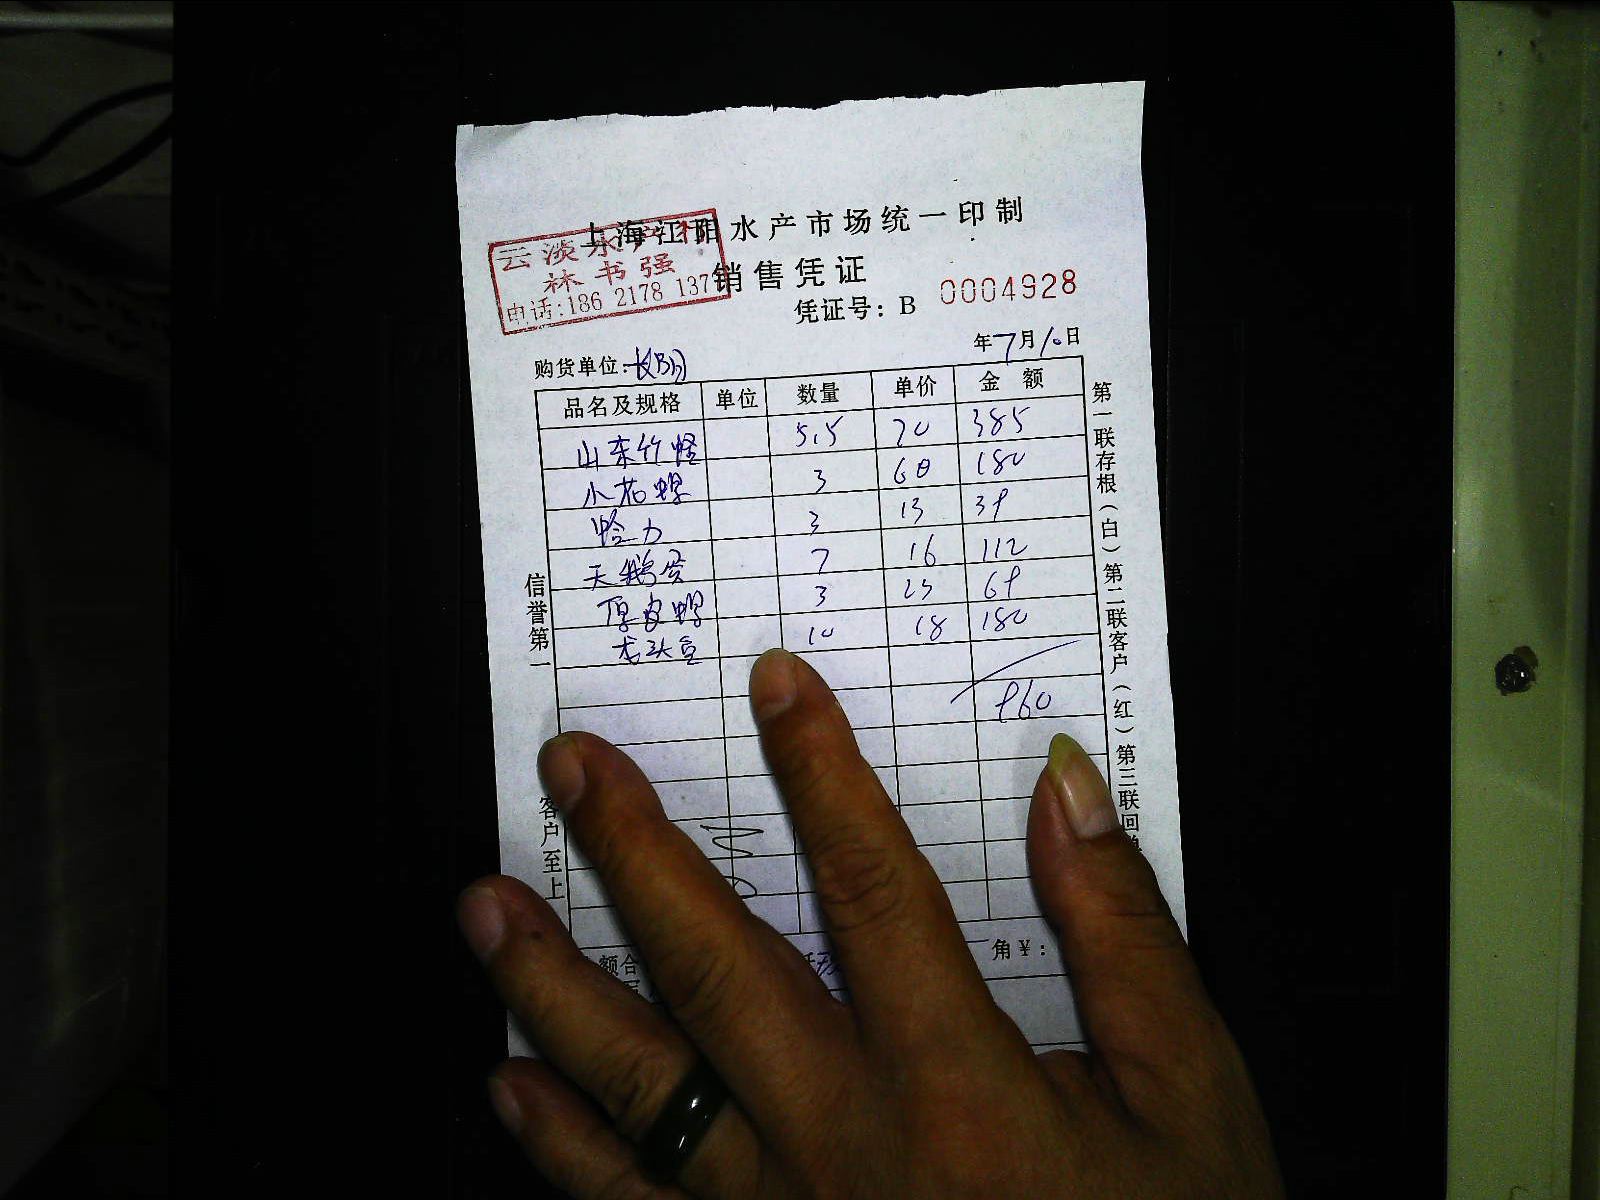 上海江阳水产市场统一印制
云淡水产行
林书强
电话:186 2178 137
销售凭证
凭证号: B 0004928
年7月10日
购货单位:长阳
品名及规格 单位 数量 单价 金额
山东竹蛏 5.5 70 385
小花螺 3 60 180
蛤力 3 13 39
天鹅蛋 7 16 112
厚皮螺 3 23 69
龙头鱼 10 18 180
960
信誉第一
客户至上
第一联存根(白)第二联客户(红)第三联回单
额合
角¥: